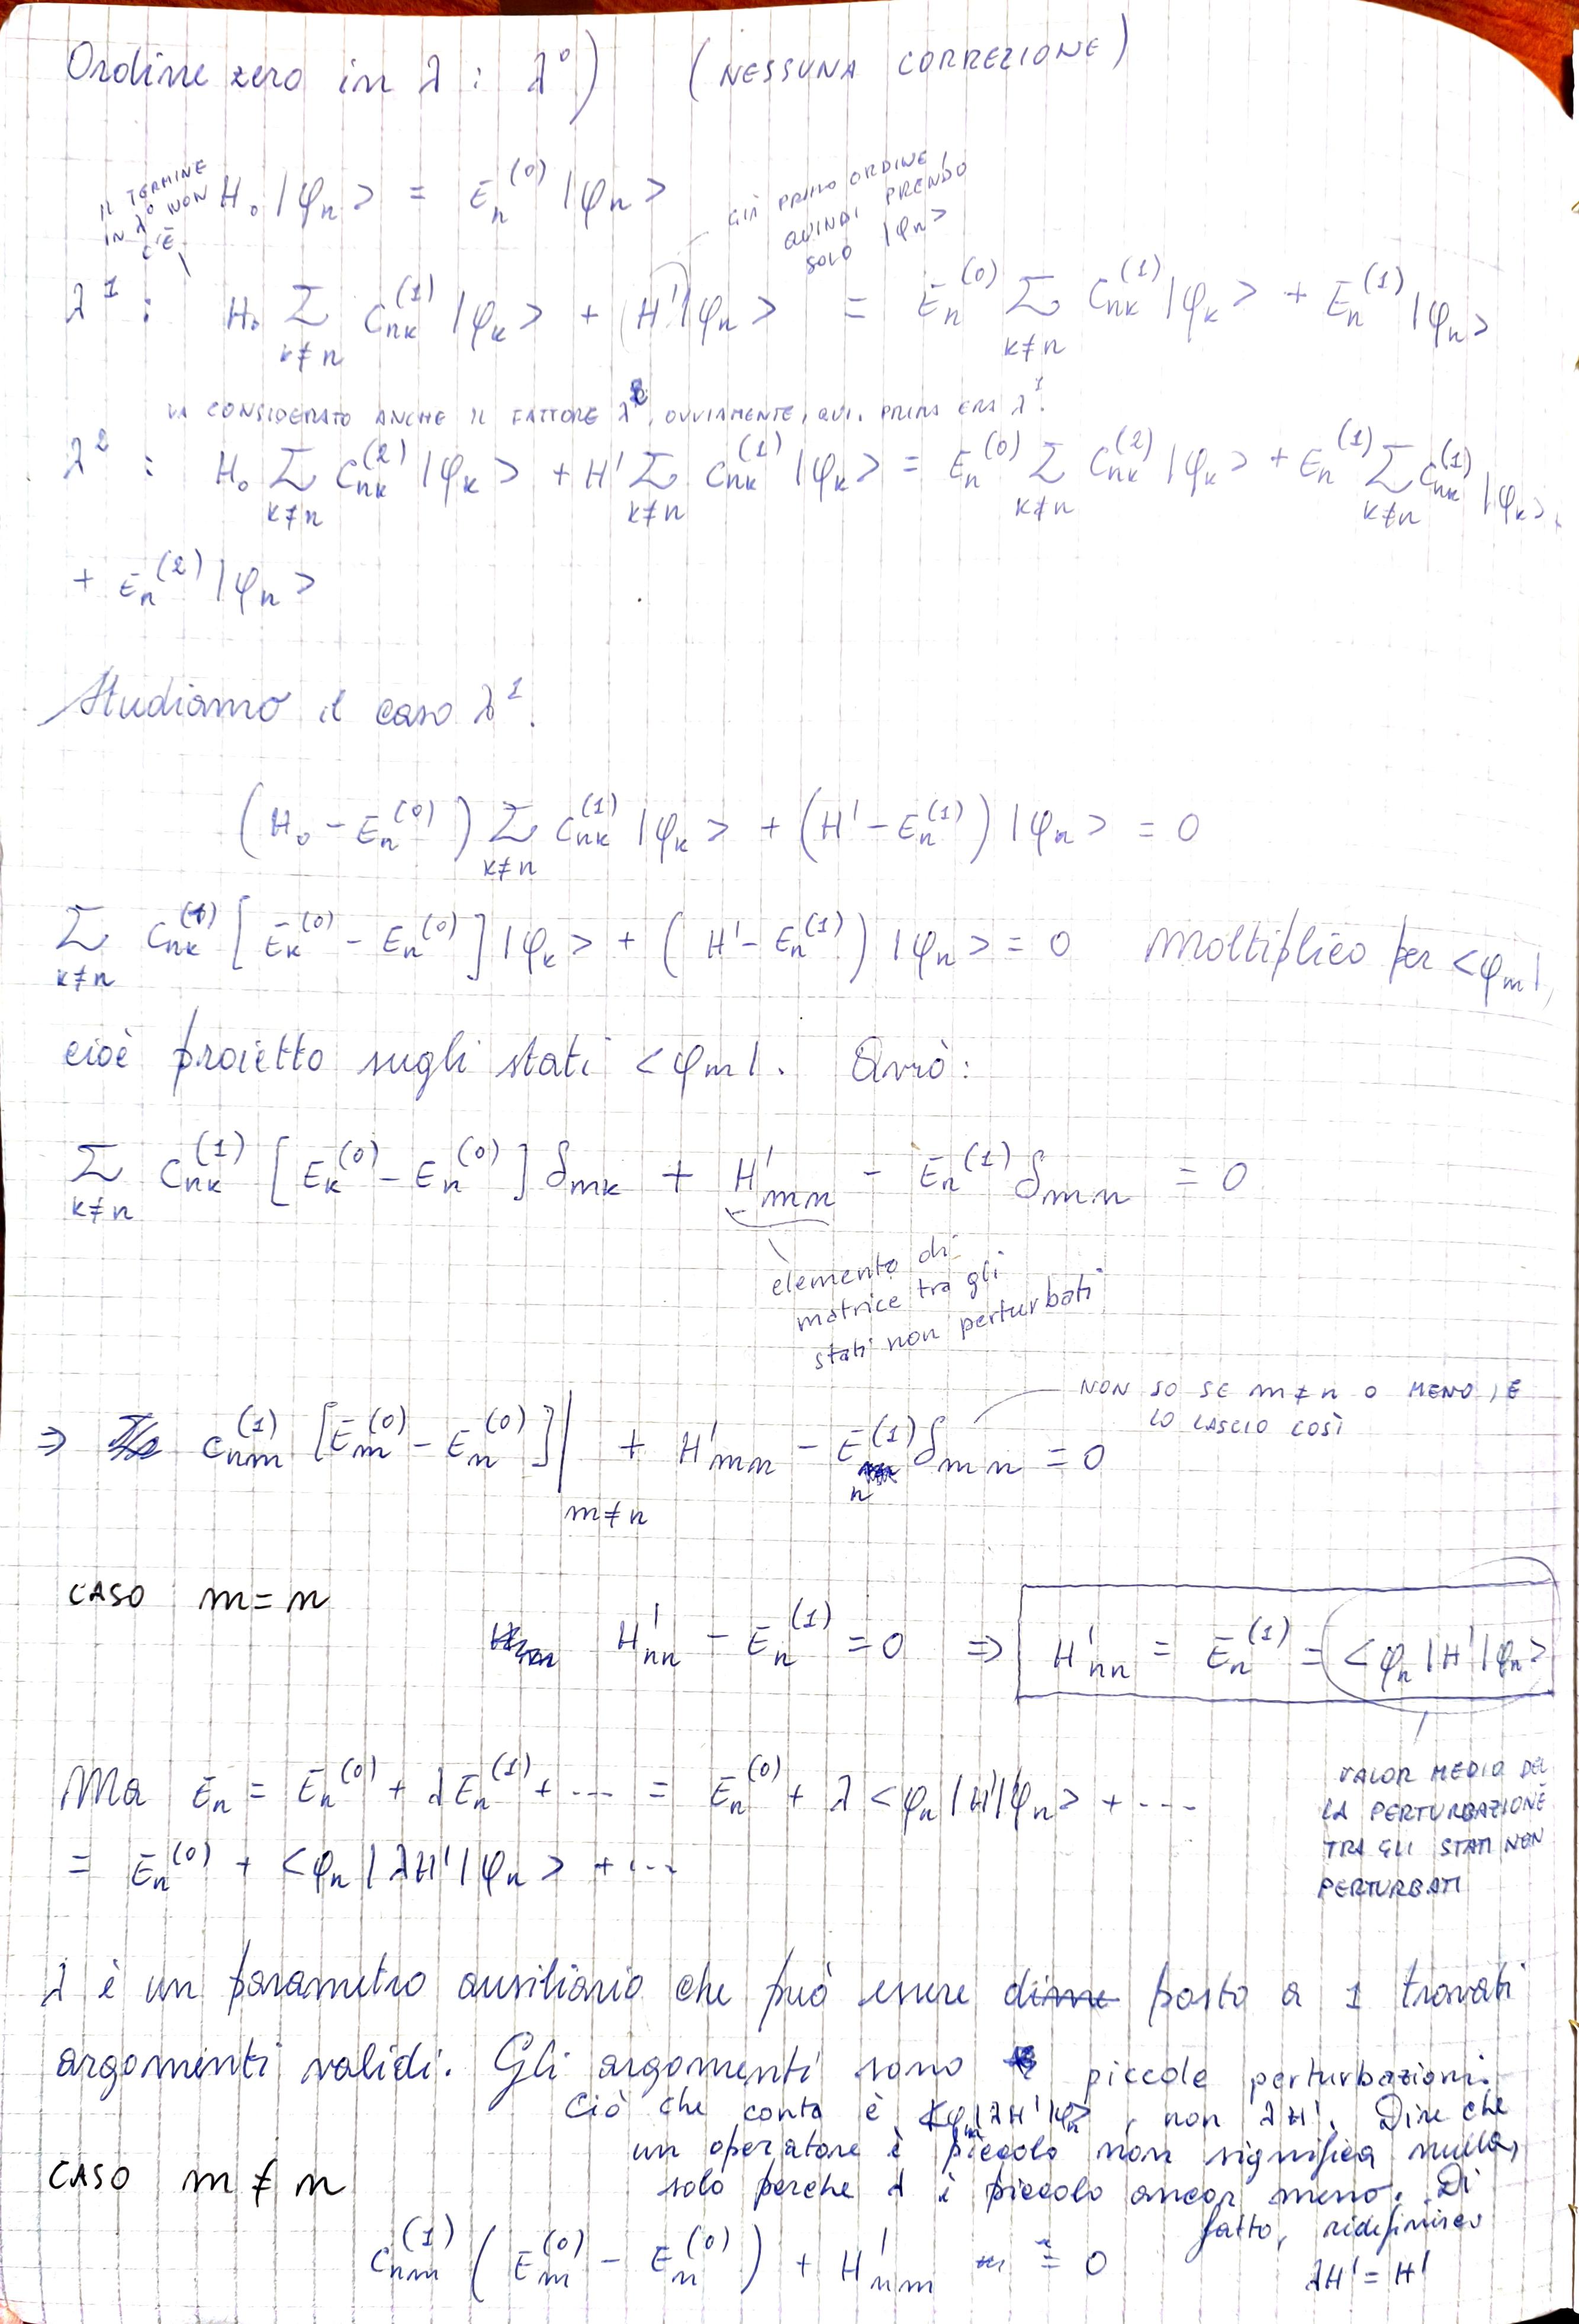 Ordine zero in λ : λ⁰) (NESSUNA CORREZIONE)
IL TERMINE
IN λ⁰ NON
C'È
H₀ |φₙ> = Eₙ⁽⁰⁾ |φₙ>
GIÀ PRIMO ORDINE,
QUINDI PRENDO
SOLO |φₙ>
λ¹ : H₀ Σ_{k≠n} Cₙₖ⁽¹⁾ |φₖ> + H' |φₙ> = Eₙ⁽⁰⁾ Σ_{k≠n} Cₙₖ⁽¹⁾ |φₖ> + Eₙ⁽¹⁾ |φₙ>
VA CONSIDERATO ANCHE IL FATTORE λ, OVVIAMENTE, QUI. PRIMA ERA λ¹.
λ² : H₀ Σ_{k≠n} Cₙₖ⁽²⁾ |φₖ> + H' Σ_{k≠n} Cₙₖ⁽¹⁾ |φₖ> = Eₙ⁽⁰⁾ Σ_{k≠n} Cₙₖ⁽²⁾ |φₖ> + Eₙ⁽¹⁾ Σ_{k≠n} Cₙₖ⁽¹⁾ |φₖ>
+ Eₙ⁽²⁾ |φₙ>
Studiamo il caso λ¹.
(H₀ - Eₙ⁽⁰⁾) Σ_{k≠n} Cₙₖ⁽¹⁾ |φₖ> + (H' - Eₙ⁽¹⁾) |φₙ> = 0
Σ_{k≠n} Cₙₖ⁽¹⁾ [Eₖ⁽⁰⁾ - Eₙ⁽⁰⁾] |φₖ> + (H' - Eₙ⁽¹⁾) |φₙ> = 0 Moltiplico per <φₘ|,
cioè proietto sugli stati <φₘ|. Avrò:
Σ_{k≠n} Cₙₖ⁽¹⁾ [Eₖ⁽⁰⁾ - Eₙ⁽⁰⁾] δₘₖ + H'ₘₙ - Eₙ⁽¹⁾ δₘₙ = 0
elemento di
matrice tra gli
stati non perturbati
NON SO SE m≠n O MENO, E
LO LASCIO COSÌ
⇒ Cₙₘ⁽¹⁾ [Eₘ⁽⁰⁾ - Eₙ⁽⁰⁾]|_{m≠n} + H'ₘₙ - Eₙ⁽¹⁾ δₘₙ = 0
CASO m = n
H'ₙₙ - Eₙ⁽¹⁾ = 0 ⇒ H'ₙₙ = Eₙ⁽¹⁾ = <φₙ|H'|φₙ>
VALOR MEDIO DEL
LA PERTURBAZIONE
TRA GLI STATI NON
PERTURBATI
Ma Eₙ = Eₙ⁽⁰⁾ + λEₙ⁽¹⁾ + --- = Eₙ⁽⁰⁾ + λ <φₙ|H'|φₙ> + ---
= Eₙ⁽⁰⁾ + <φₙ|λH'|φₙ> + ...
λ è un parametro ausiliario che può essere posto a 1 trovati
argomenti validi. Gli argomenti sono piccole perturbazioni.
Ciò che conta è <φₘ|λH'|φₙ>, non λH'. Dire che
un operatore è piccolo non significa nulla,
solo perche λ è piccolo ancor meno. Di
fatto, ridefinisco
λH' = H'
CASO m ≠ n
Cₙₘ⁽¹⁾ (Eₘ⁽⁰⁾ - Eₙ⁽⁰⁾) + H'ₙₘ = 0